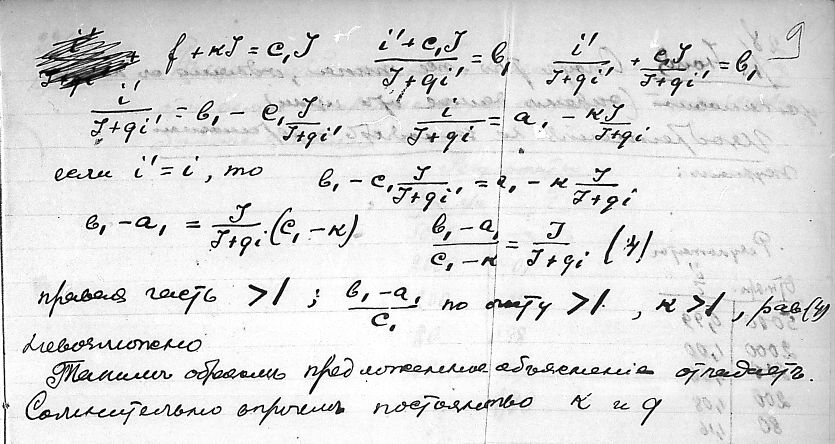 9
f + кJ = c₁J   (i' + c₁J)/(J + qi') = b₁   i'/(J + qi') + c₁J/(J + qi') = b₁
i'/(J + qi') = b₁ − c₁ J/(J + qi')   i/(J + qi) = a₁ − кJ/(J + qi)
если i' = i, то   b₁ − c₁ J/(J + qi') = a₁ − к J/(J + qi)
b₁ − a₁ = J/(J + qi) (c₁ − к)   (b₁ − a₁)/(c₁ − к) = J/(J + qi) (4)
правая часть >1 ; (b₁ − a₁)/c₁ по опыту >1. , к >1, рав (4)
невозможно
Такимъ образомъ предложенное объясненіе отпадаетъ.
Сомнительно впрочемъ постоянство к и q